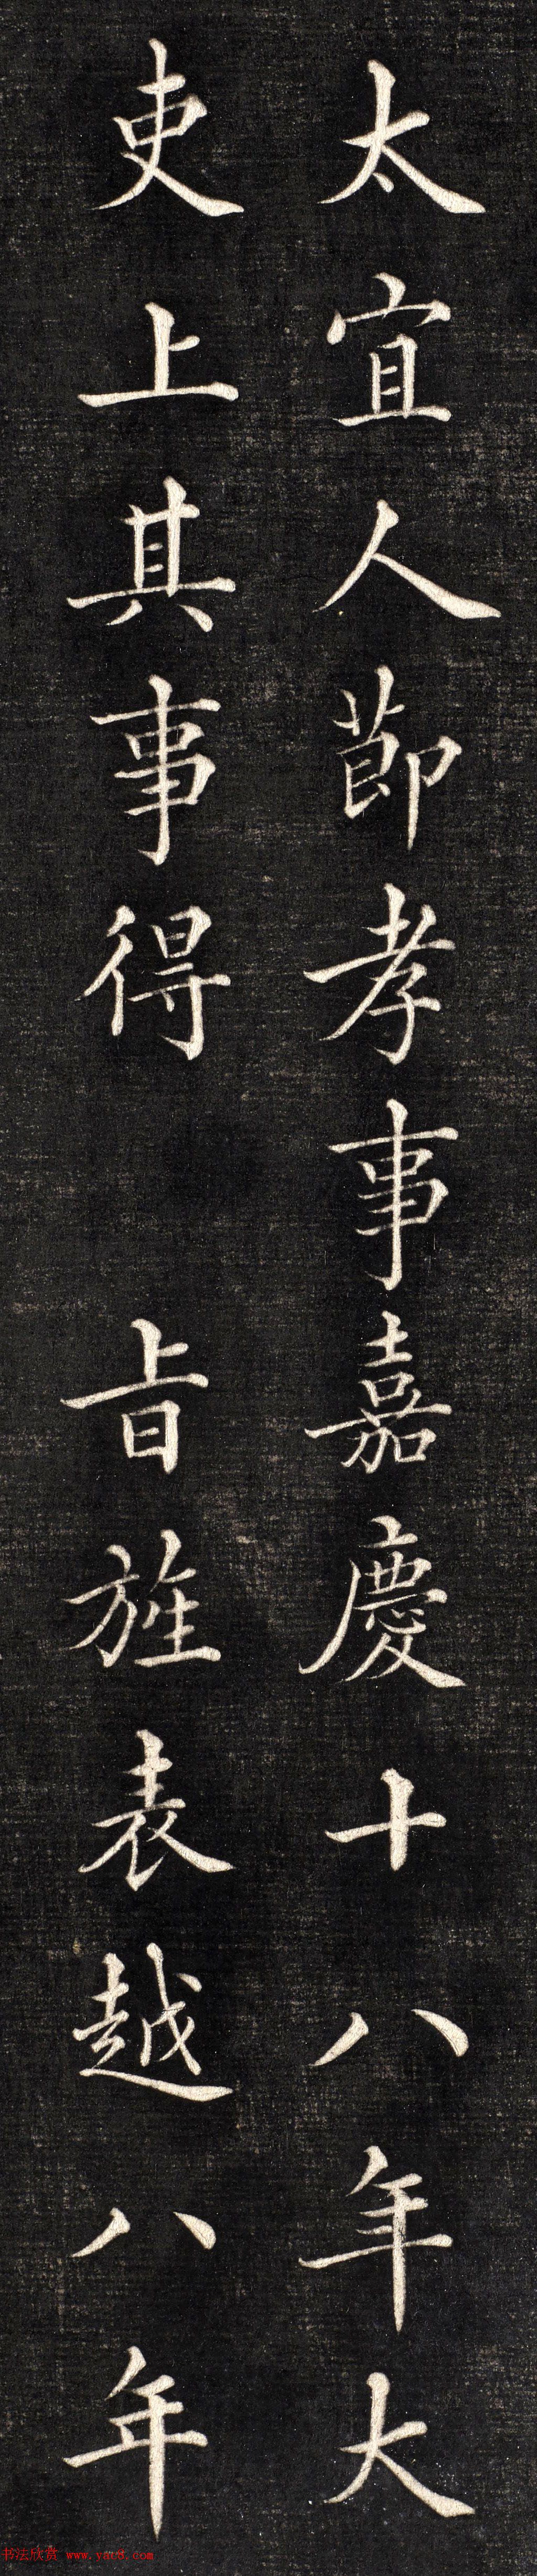 太宜人節孝事嘉慶十八年大
吏上其事得 旨旌表越八年
书法欣赏 www.yac8.com